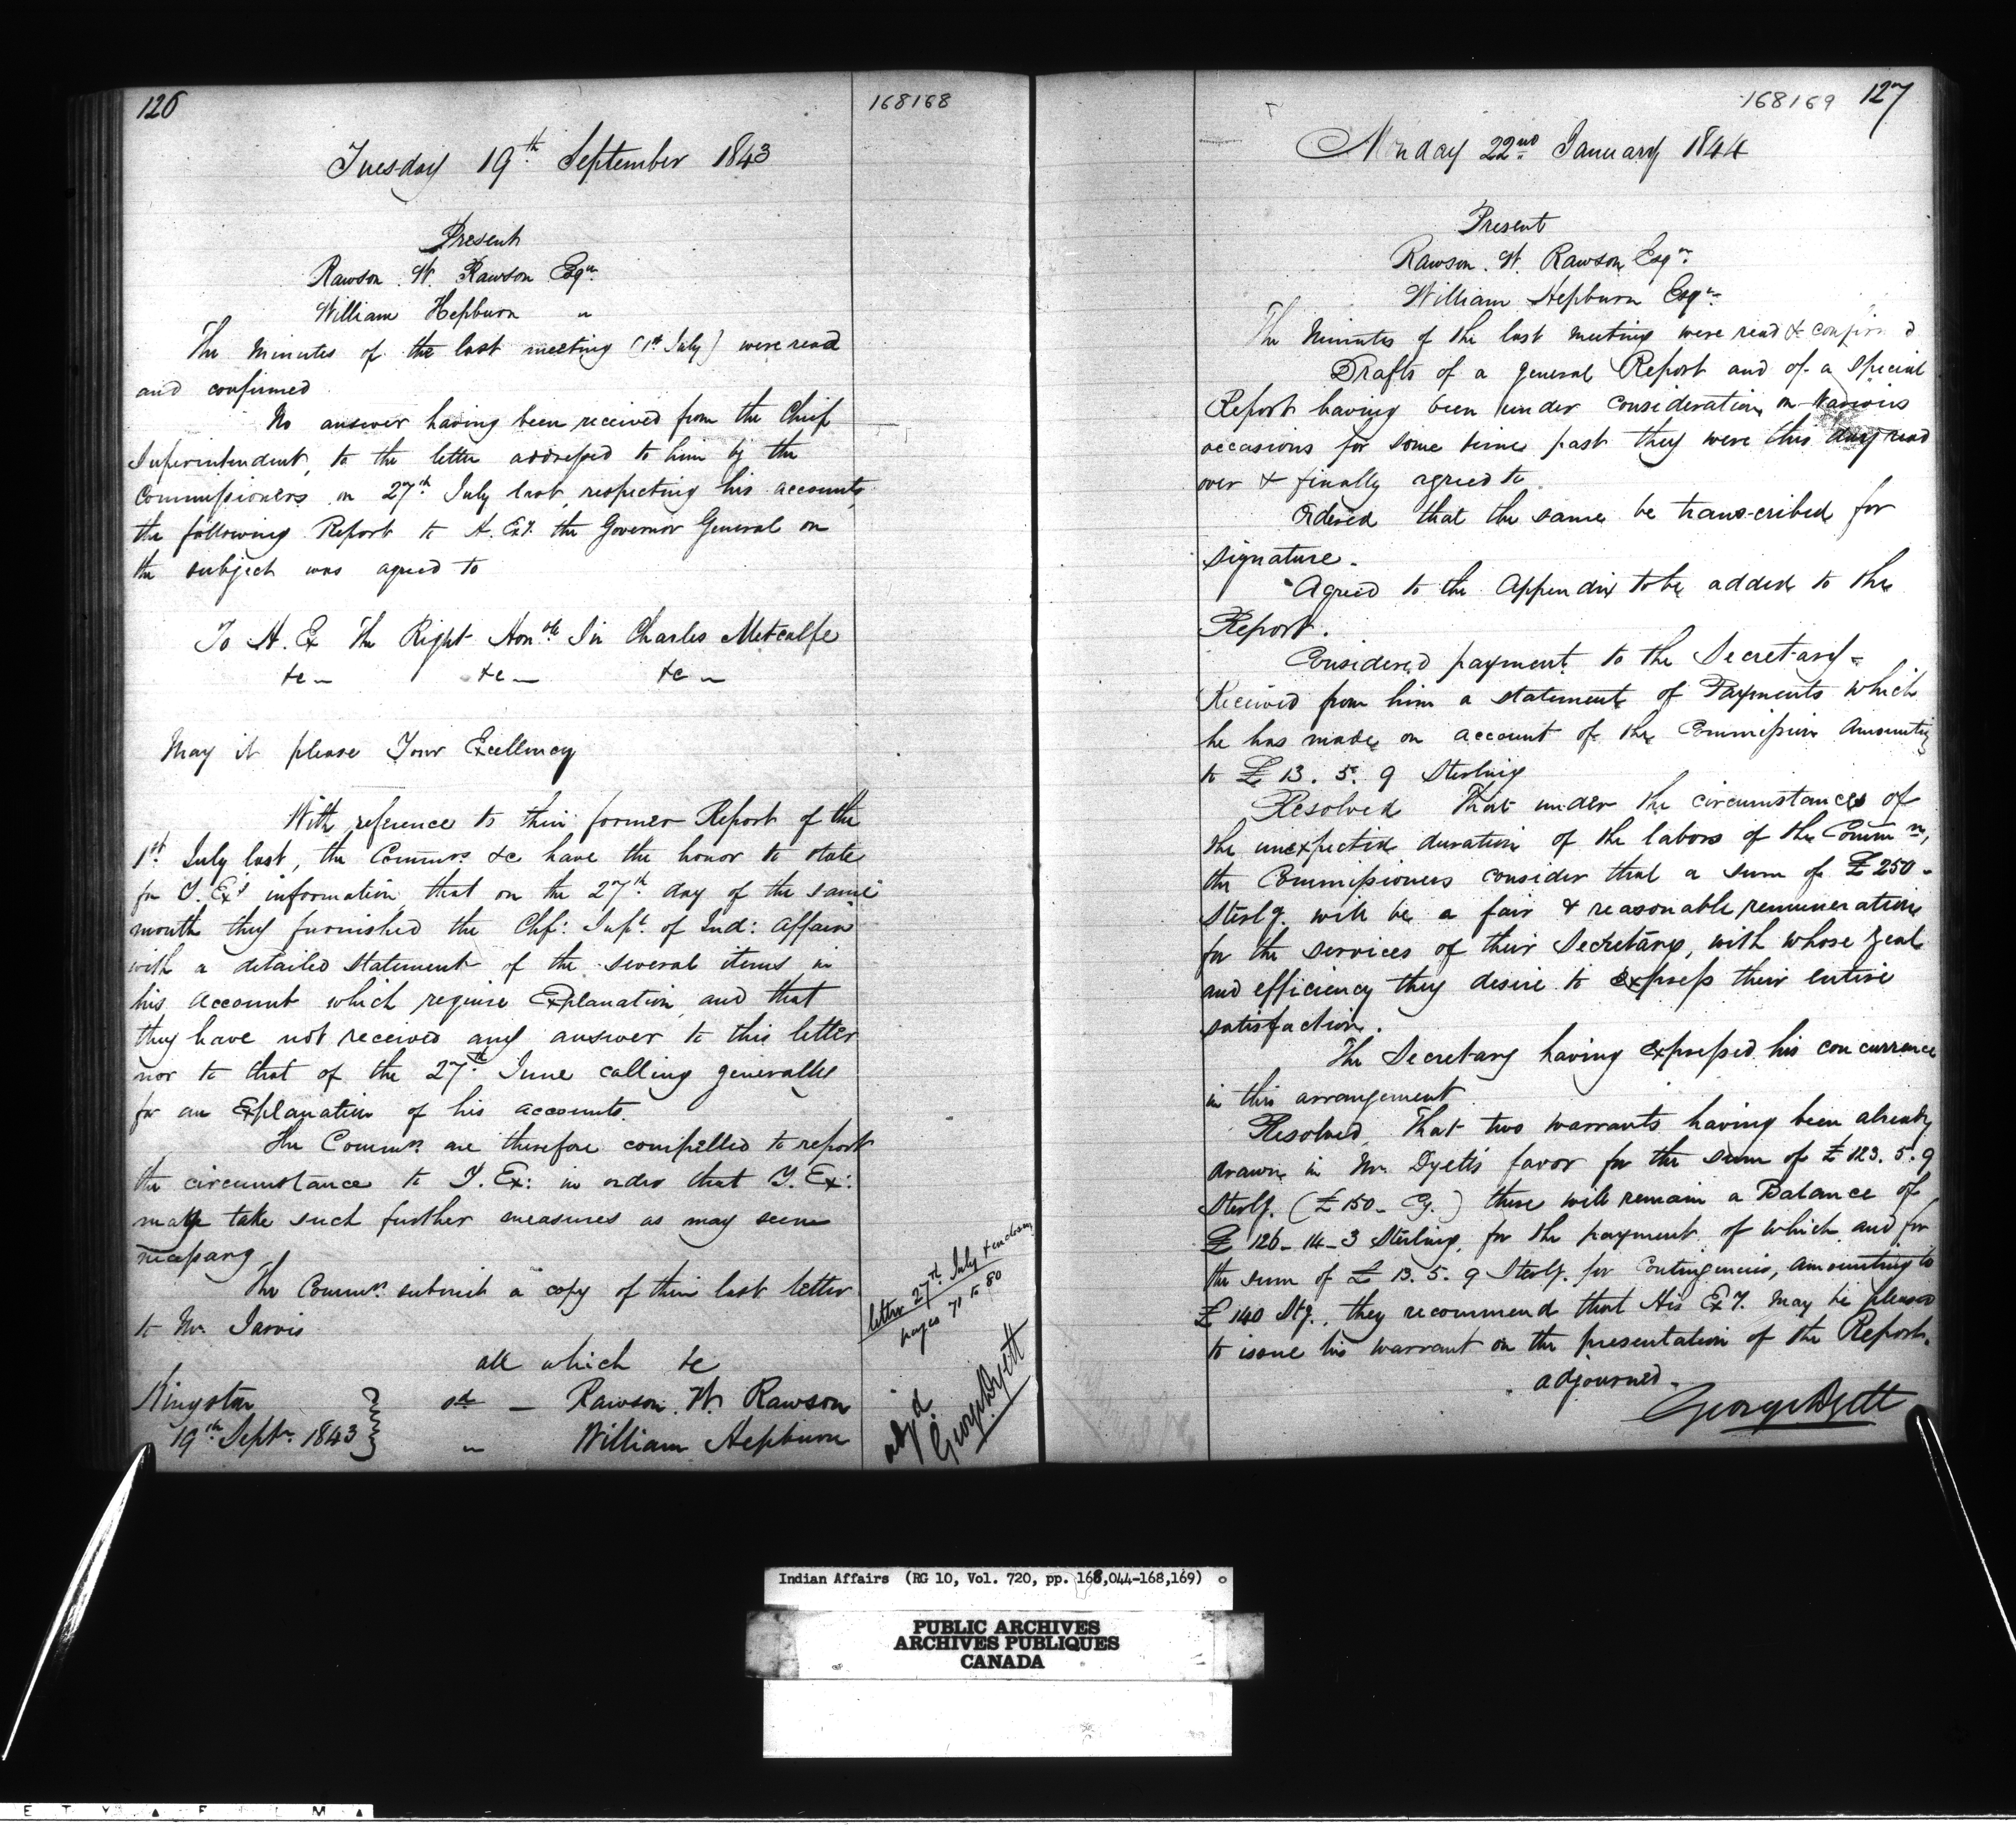 126
168168
Tuesday 19th September 1843
Present
Rawson W. Rawson Esqre
William Hepburn "
The Minutes of the last meeting (1st July) were read
and confirmed
No answer having been received from the Chief
Superintendent, to the letter addressed to him by the
Commissioners on 27th July last, respecting his accounts,
the following Report to H. Exy. the Governor General on
the subject was agreed to
To H. Ex The Right Honble Sir Charles Metcalfe
&c — &c — &c —
May it please Your Excellency
With reference to their former Report of the
1st July last, the Commrs. &c have the honor to state
for Y. Exs information that on the 27th day of the same
month they furnished the Chf: Supt. of Ind: Affairs
with a detailed Statement of the several items in
his Account which require Explanation and that
they have not received any answer to this letter
nor to that of the 27th June calling generally
for an Explanation of his accounts.
The Commrs. are therefore compelled to report
the circumstance to Y. Ex: in order that Y. Ex:
may take such further measures as may seem
necessary.
The Commrs. submit a copy of their last letter
to Mr. Jarvis
all which &c
Kingston
19th Septr. 1843
sd — Rawson W. Rawson
" William Hepburn
letter 27th July
pages 71 to 80
adjd
George Dyett
168169 127
Monday 22nd January 1844
Present
Rawson. W. Rawson Esqre
William Hepburn Esqre
The Minutes of the last meeting were read & confirmed
Drafts of a general Report and of a Special
Report having been under consideration on various
occasions for some time past they were this day read
over & finally agreed to.
Ordered that the same be transcribed for
signature.
Agreed to the Appendix to be added to the
Report.
Considered payment to the Secretary.
Received from him a statement of Payments which
he has made on account of the Commission Amounting
to £ 13. 5. 9 Sterling
Resolved That under the circumstances of
the unexpected duration of the labors of the Commn,
the Commissioners consider that a sum of £250 -
Sterlg. will be a fair & reasonable remuneration
for the services of their Secretary, with whose zeal
and efficiency they desire to express their entire
satisfaction.
The Secretary having expressed his concurrence
in this arrangement
Resolved, That two warrants having been already
drawn in Mr Dyett's favor for the sum of £123. 5. 9
Sterlg. (£150 - Cy.) there will remain a Balance of
£ 126-14-3 Sterling, for the payment of which and for
the sum of £ 13. 5. 9 Sterlg. for Contingencies, amounting to
£ 140 Stg., they recommend that His Exy. may be pleased
to issue his warrant on the presentation of the Report.
adjourned.
George Dyett
Indian Affairs (RG 10, Vol. 720, pp. 168,044-168,169)
PUBLIC ARCHIVES
ARCHIVES PUBLIQUES
CANADA
E T Y A F I L M